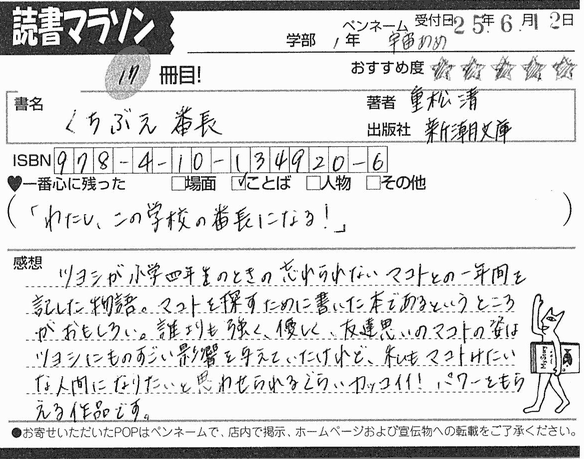 読書マラソン
ペンネーム 受付日25年6月12日
学部 1年 宇宙めめ
17 冊目! おすすめ度 ☆☆☆☆☆
書名 くちぶえ番長
著者 重松清
出版社 新潮文庫
ISBN 978-4-10-134920-6
♥一番心に残った □場面 ☑ことば □人物 □その他
(「わたし、この学校の番長になる!」)
感想
ツヨシが小学四年生のときの忘れられないマコトとの一年間を
記した物語。マコトを探すために書いた本であるというところ
がおもしろい。誰よりも強く、優しく、友達思いのマコトの姿は
ツヨシにものすごい影響を与えていたけれど、私もマコトみたい
な人間になりたいと思わせられるぐらいカッコイイ!パワーをもら
える作品です。
●お寄せいただいたPOPはペンネームで、店内で掲示、ホームページおよび宣伝物への転載をご了承ください。